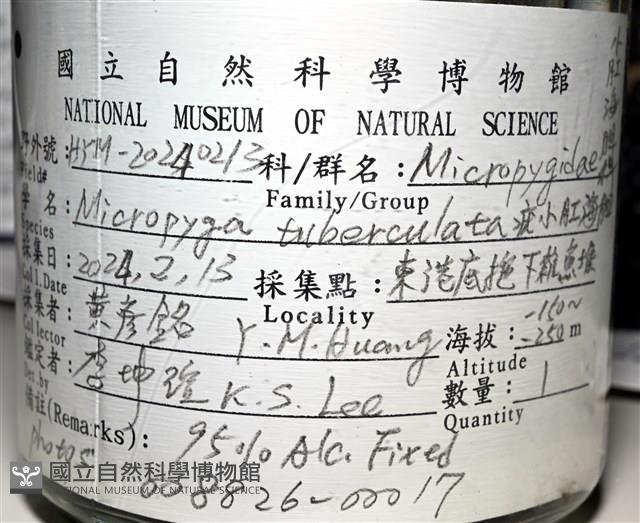 國立自然科學博物館
NATIONAL MUSEUM OF NATURAL SCIENCE
野外號:HYM-20240213 科/群名:Micropygidae 小肛海膽科
Field# Family/Group
學名:Micropyga tuberculata 疣小肛海膽
Species
採集日:2024,2,13 採集點:東港底拖下雜魚堆
Coll.Date Locality
採集者:黃彥銘 Y.M.Huang 海拔:-150~-250m
Collector Altitude
鑑定者:李坤瑄 K.S. Lee 數量:1
Det.by Quantity
備註(Remarks): 95% Alc. Fixed
photos
8826-00017
國立自然科學博物館
NATIONAL MUSEUM OF NATURAL SCIENCE